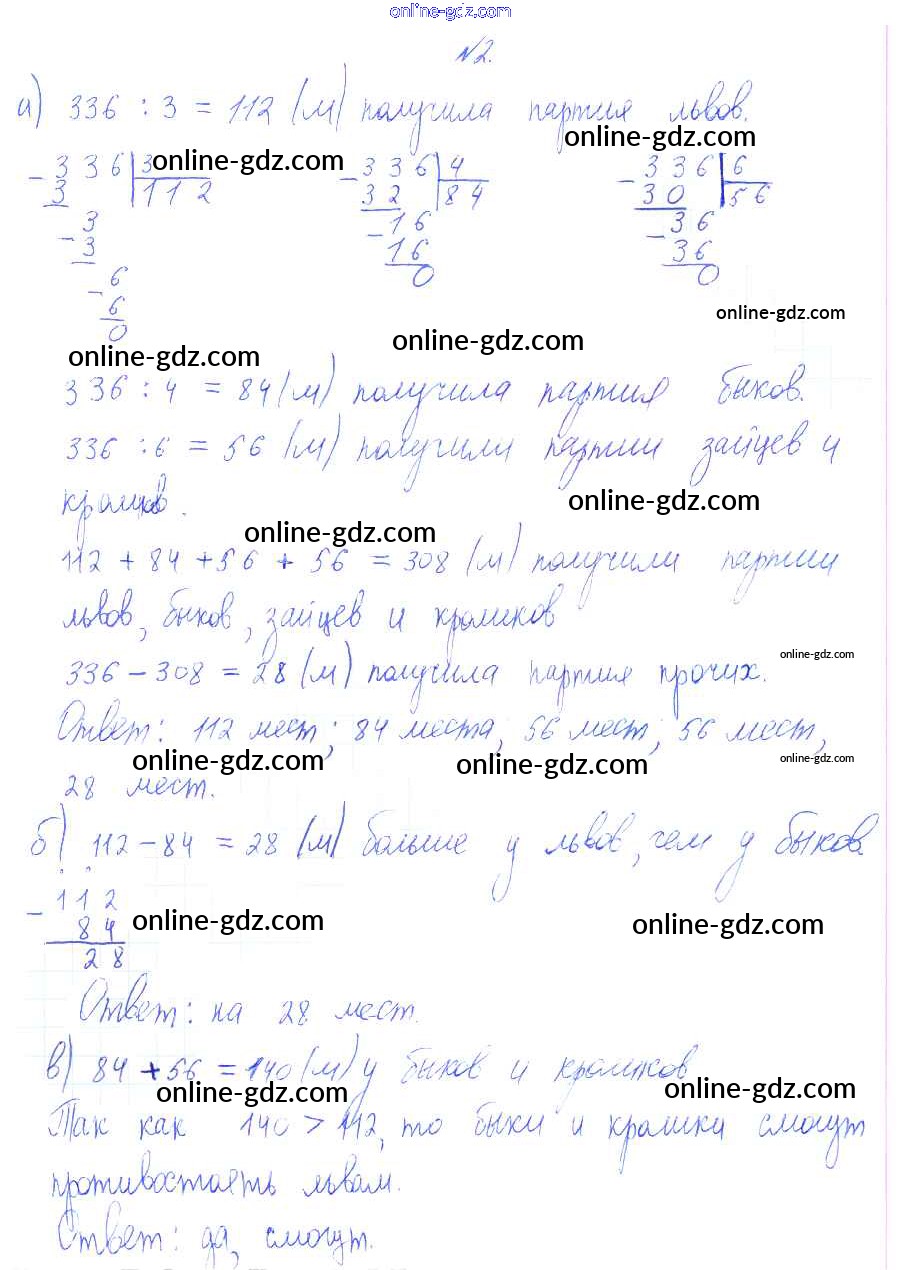 online-gdz.com
№2.
а) 336 : 3 = 112 (м) получила партия львов.
online-gdz.com
- 336 | 3 online-gdz.com - 336 | 4 - 336 | 6
3 112 32 84 30 56
- 3 - 16 - 36
3 16 36
- 6 0 0
6 online-gdz.com
0
online-gdz.com online-gdz.com
336 : 4 = 84 (м) получила партия быков.
336 : 6 = 56 (м) получили партии зайцев и
кроликов.
online-gdz.com
online-gdz.com
112 + 84 + 56 + 56 = 308 (м) получили партии
львов, быков, зайцев и кроликов
online-gdz.com
336 - 308 = 28 (м) получила партия прочих.
Ответ: 112 мест; 84 места; 56 мест; 56 мест,
online-gdz.com online-gdz.com online-gdz.com
28 мест.
б) 112 - 84 = 28 (м) больше у львов, чем у быков.
- 112
84 online-gdz.com online-gdz.com
28
Ответ: на 28 мест.
в) 84 + 56 = 140 (м) у быков и кроликов
online-gdz.com online-gdz.com
Так как 140 > 112, то быки и кролики смогут
противостоять львам.
Ответ: да, смогут.